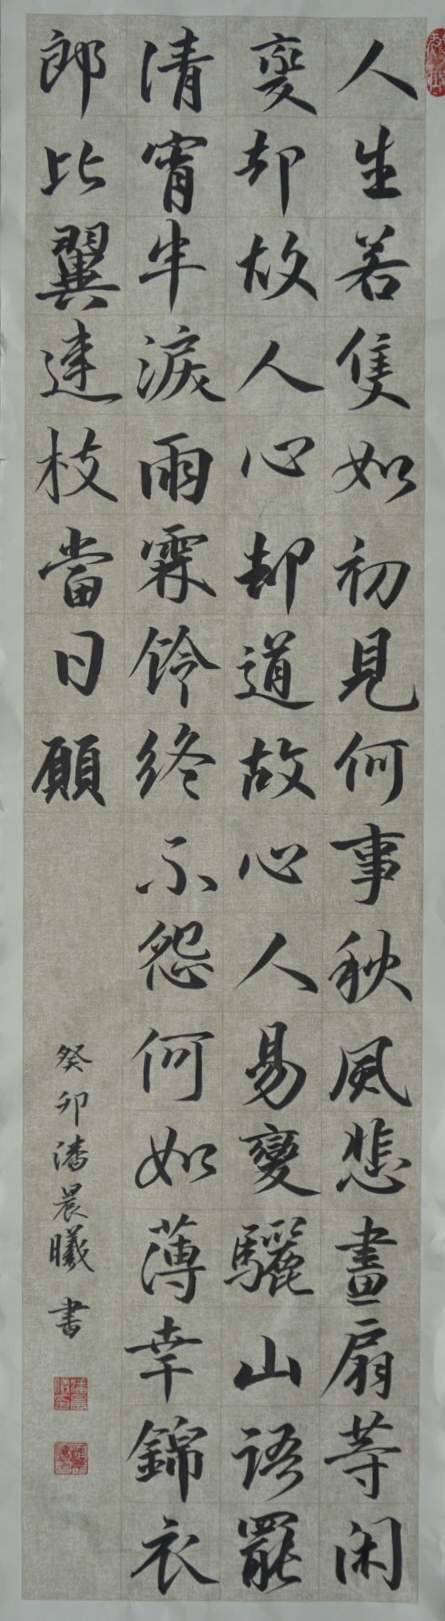 人生若隻如初見何事秋風悲畫扇等闲
變却故人心却道故心人易變驪山语罷
清宵半淚雨霖鈴終不怨何如薄幸錦衣
郎比翼連枝當日願
癸卯潘晨曦書